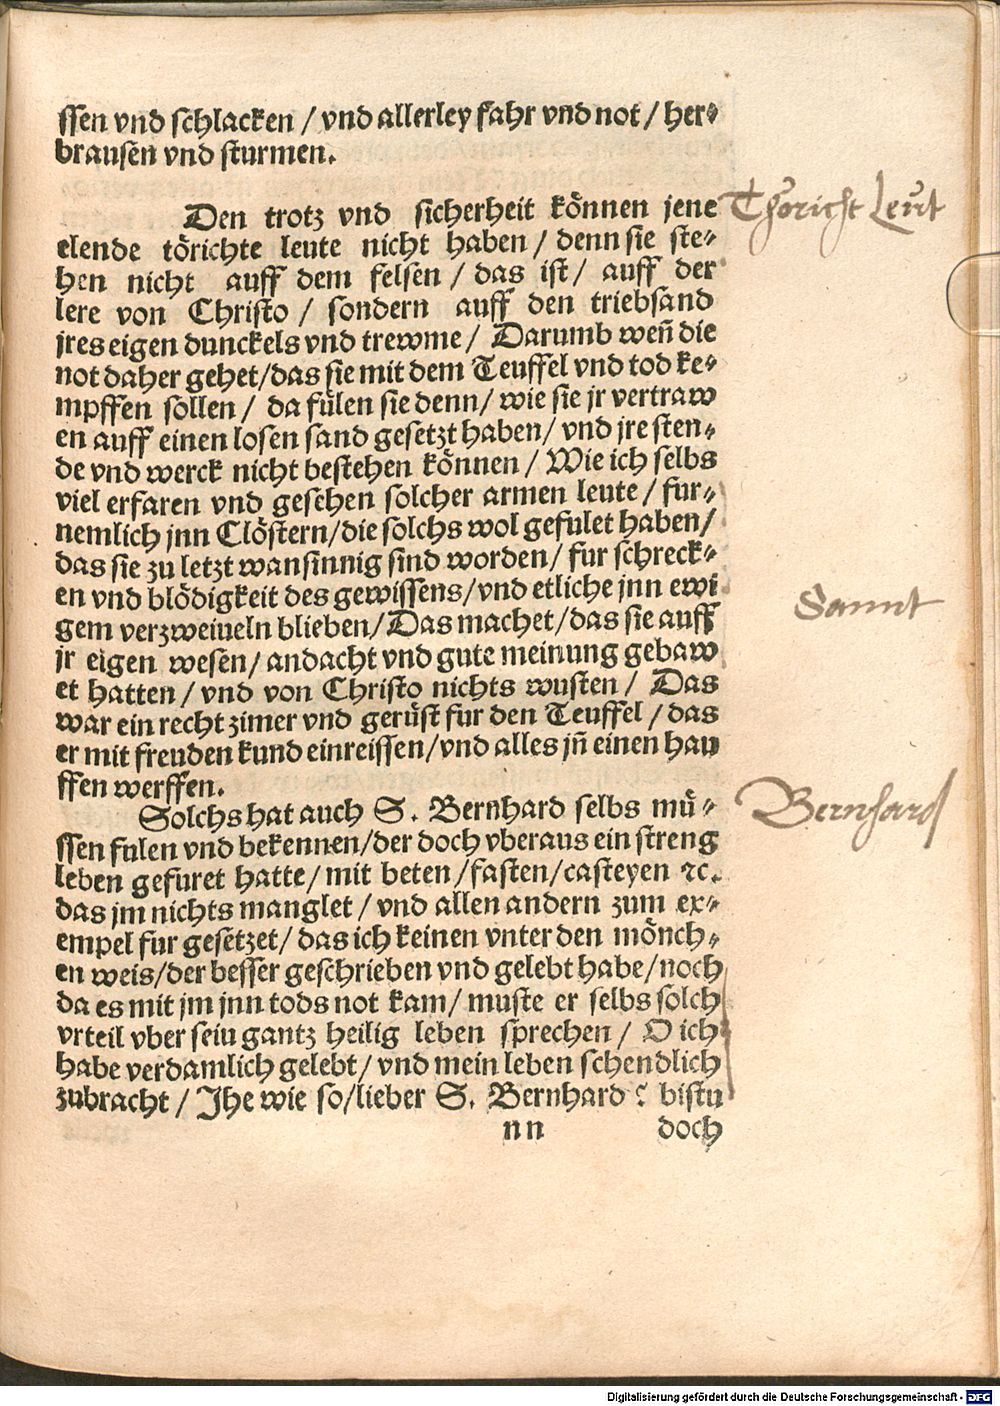 ssen vnd schlacken / vnd allerley fahr vnd not / her⸗
brausen vnd sturmen.
Den trotz vnd sicherheit können jene
elende törichte leute nicht haben / denn sie ste⸗
hen nicht auff dem felsen / das ist / auff der
lere von Christo / sondern auff den triebsand
jres eigen dunckels vnd trewme / Darumb weñ die
not daher gehet / das sie mit dem Teuffel vnd tod ke⸗
mpffen sollen / da fülen sie denn / wie sie jr vertraw
en auff einen losen sand gesetzt haben / vnd jre sten⸗
de vnd werck nicht bestehen können / Wie ich selbs
viel erfaren vnd gesehen solcher armen leute / fur⸗
nemlich jnn Clöstern / die solchs wol gefulet haben /
das sie zu letzt wansinnig sind worden / fur schreck⸗
en vnd blödigkeit des gewissens / vnd etliche jnn ewi
gem verzweiueln blieben / Das machet / das sie auff
jr eigen wesen / andacht vnd gute meinung gebaw
et hatten / vnd von Christo nichts wusten / Das
war ein recht zimer vnd gerüst fur den Teuffel / das
er mit freuden kund einreissen / vnd alles jñ einen hau
ffen werffen.
Solchs hat auch S. Bernhard selbs mü⸗
ssen fulen vnd bekennen / der doch vberaus ein streng
leben gefuret hatte / mit beten / fasten / casteyen ꝛc.
das jm nichts manglet / vnd allen andern zum ex⸗
empel fur gesetzet / das ich keinen vnter den mönch⸗
en weis / der besser geschrieben vnd gelebt habe / noch
da es mit jm jnn tods not kam / muste er selbs solch
vrteil vber seiu gantz heilig leben sprechen / O ich
habe verdamlich gelebt / vnd mein leben schendlich
zubracht / Jhe wie so / lieber S. Bernhard ? bistu
nn doch
Thöricht Leut
Sannt
Bernhard
Digitalisierung gefördert durch die Deutsche Forschungsgemeinschaft - DFG